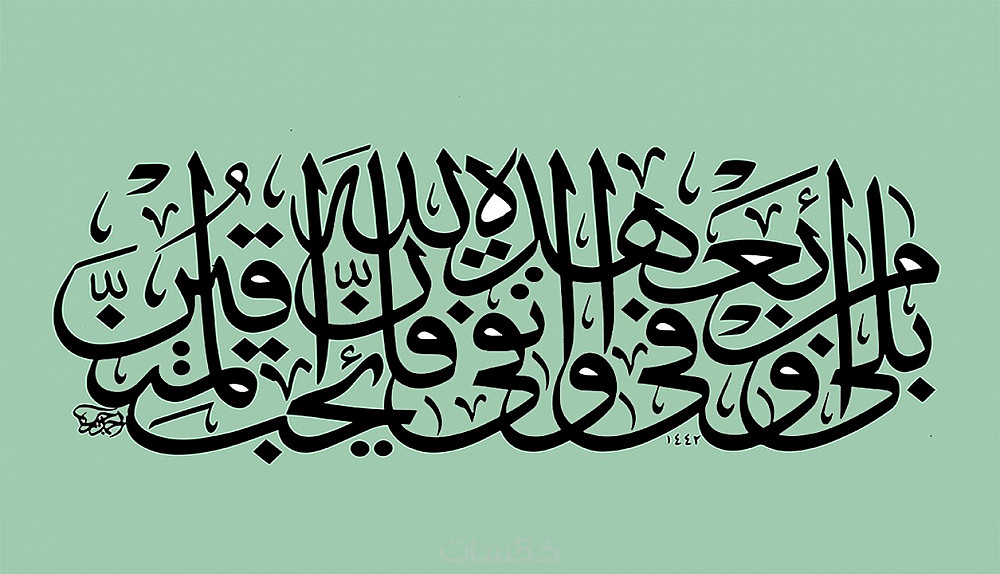 بَلَىٰ مَنْ أَوْفَىٰ بِعَهْدِهِ وَاتَّقَىٰ فَإِنَّ اللَّهَ يُحِبُّ الْمُتَّقِينَ
١٤٤٢
خمسات